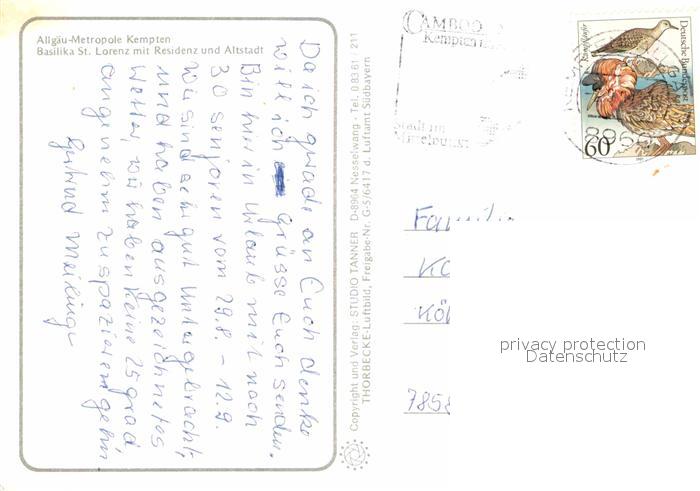 Allgäu-Metropole Kempten
Basilika St. Lorenz mit Residenz und Altstadt
Da ich gerade an Euch denke
will ich Grüsse Euch senden.
Bin hier in Urlaub mit noch
30 Senioren vom 29.8. - 12.9.
Wir sind sehr gut untergebracht,
und haben ausgezeichnetes
Wetter, wir haben keine 25 grad,
angenehm zu spazieren gehn
Gertrud
Copyright und Verlag: STUDIO TANNER D-8964 Nesselwang - Tel. 0 83 61 / 211
THORBECKE-Luftbild, Freigabe-Nr. G-5/6417 d. Luftamt Südbayern
CAMBOO
Kempten
Stadt im
Deutsche Bundespost
Kampfläufer
60
896
Fam
KÖ
7858
privacy protection
Datenschutz